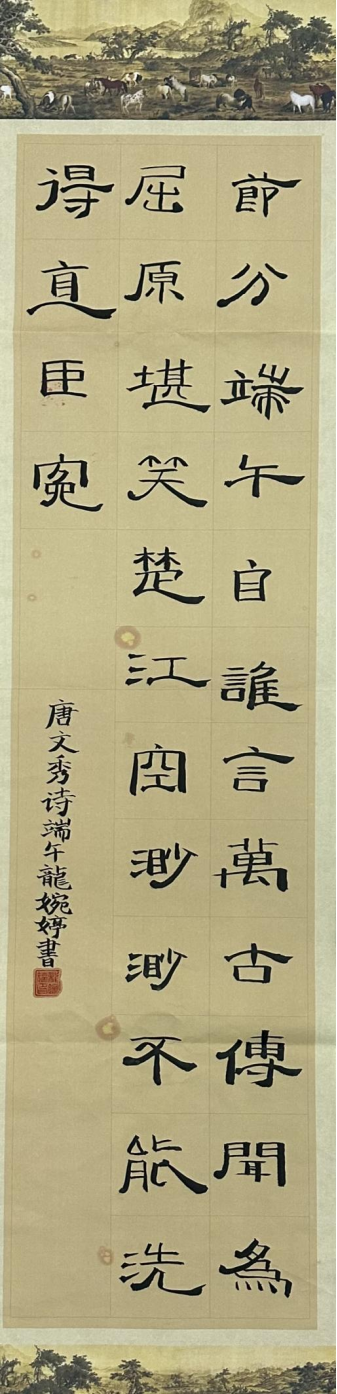 節分端午自誰言萬古傳聞為
屈原堪笑楚江空渺渺不能洗
得直臣冤
唐文秀诗端午龍婉婷書